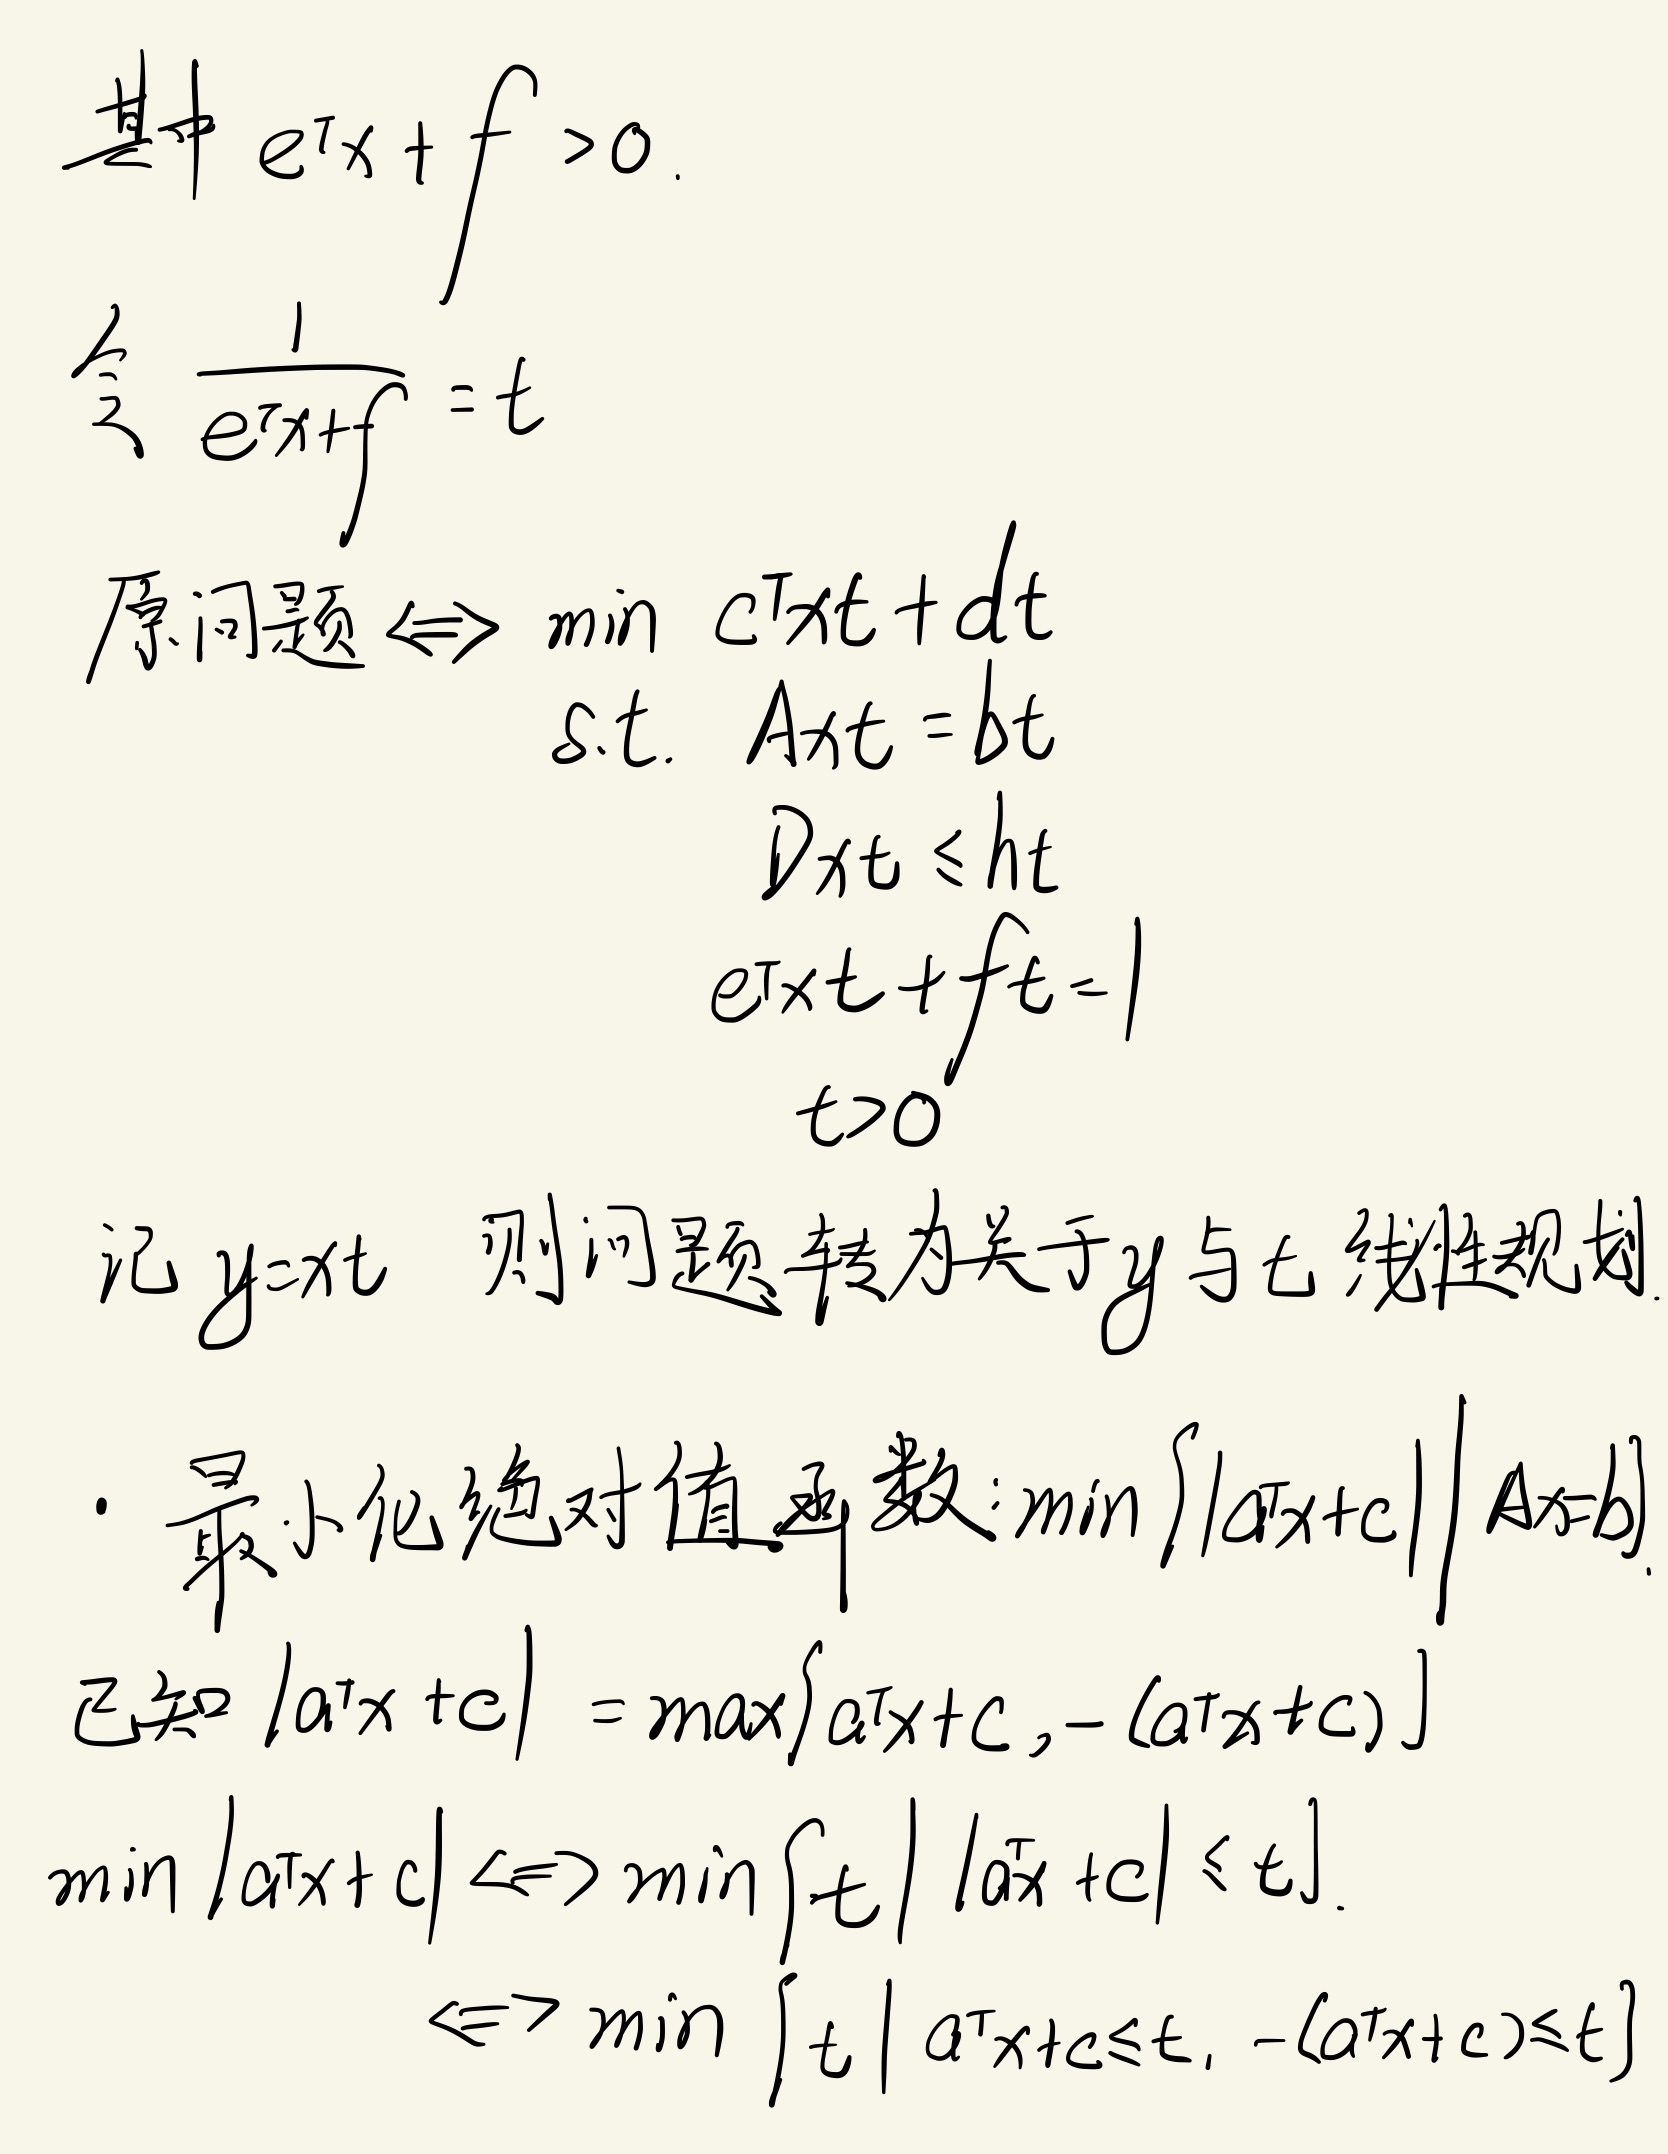 其中 eᵀx + f > 0.
令 1/(eᵀx+f) = t
原问题 ⟺ min cᵀxt + dt
s.t. Axt = bt
Dxt ≤ ht
eᵀxt + ft = 1
t>0
记 y=xt 则问题转为关于y与t线性规划.
· 最小化绝对值函数: min{|aᵀx+c| | Ax=b}.
已知 |aᵀx+c| = max{aᵀx+c, -(aᵀx+c)}
min |aᵀx+c| ⟺ min{t | |aᵀx+c| ≤ t}.
⟺ min {t | aᵀx+c≤t, -(aᵀx+c)≤t}